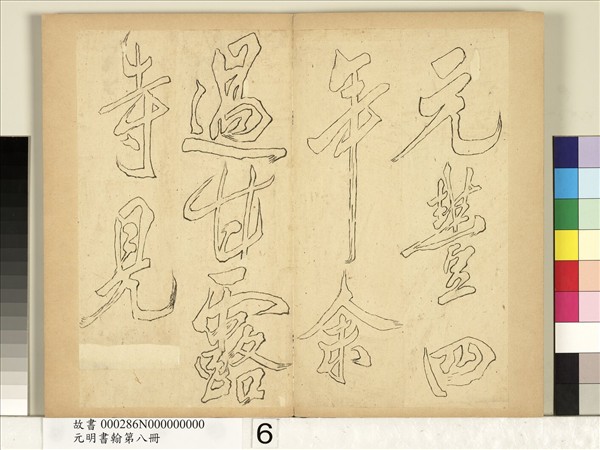 元豐四
年余
過甘露
寺見
故書 000286N000000000
元明書翰第八冊
6